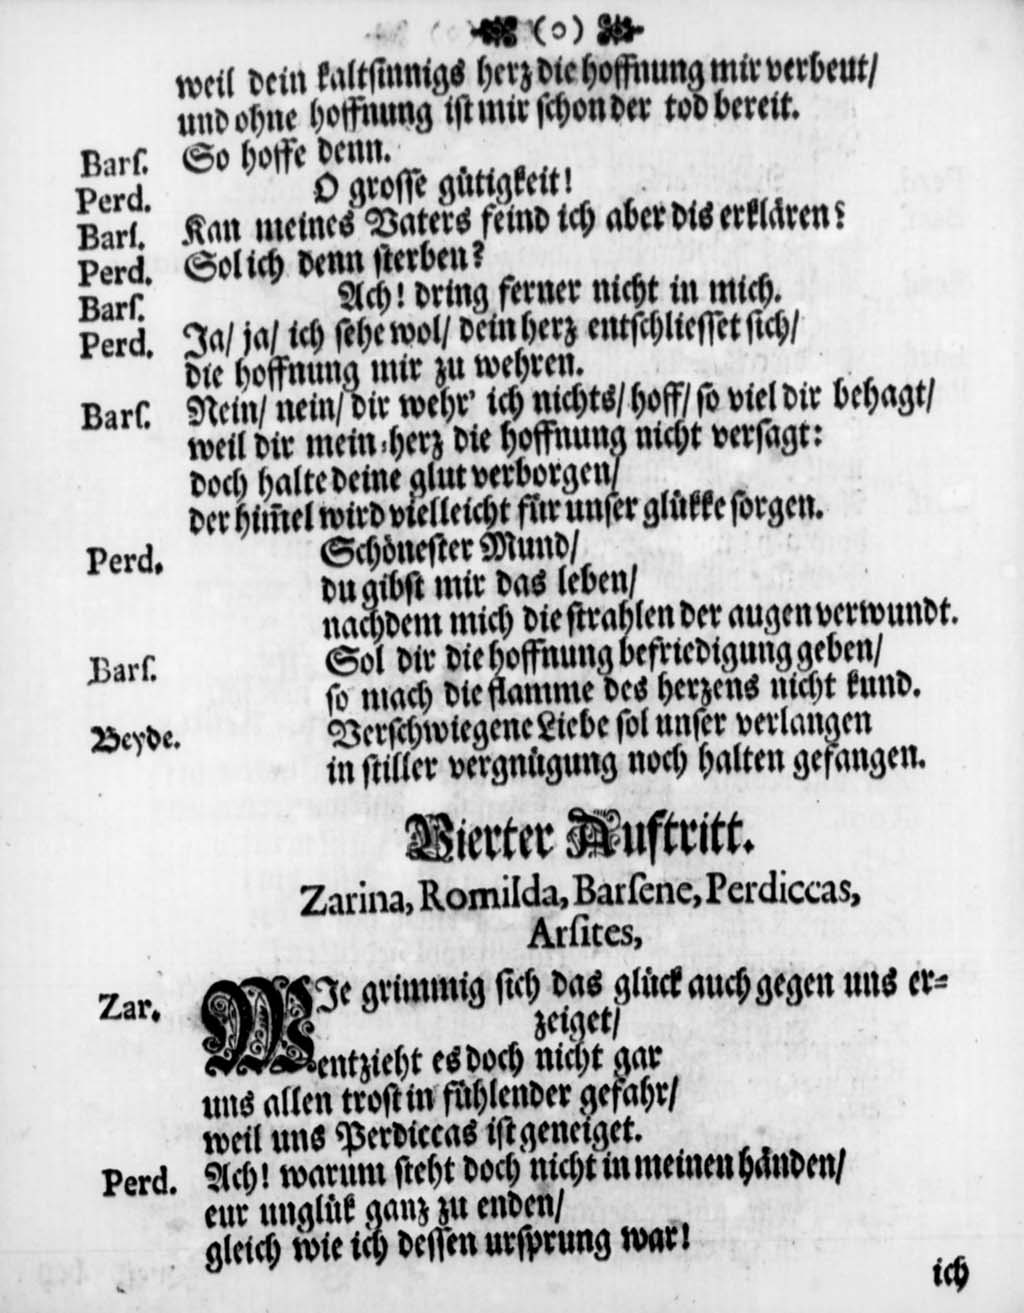 (o)
weil dein kaltsinnigs herz die hoffnung mir verbeut/
und ohne hoffnung ist mir schon der tod bereit.
Bars. So hoffe denn.
Perd. O grosse gütigkeit!
Bars. Kan meines Vaters feind ich aber dis erklären?
Perd. Sol ich denn sterben?
Bars. Ach! dring ferner nicht in mich.
Perd. Ja/ ja/ ich sehe wol/ dein herz entschliesset sich/
die hoffnung mir zu wehren.
Bars. Nein/ nein/ dir wehr' ich nichts/ hoff/ so viel dir behagt/
weil dir mein herz die hoffnung nicht versagt:
doch halte deine glut verborgen/
der him̃el wird vielleicht für unser glükke sorgen.
Perd. Schönester Mund/
du gibst mir das leben/
nachdem mich die strahlen der augen verwundt.
Bars. Sol dir die hoffnung befriedigung geben/
so mach die flamme des herzens nicht kund.
Beyde. Verschwiegene Liebe sol unser verlangen
in stiller vergnügung noch halten gefangen.
Vierter Auftritt.
Zarina, Romilda, Barsene, Perdiccas,
Arsites,
Zar. WIe grimmig sich das glück auch gegen uns er-
zeiget/
entzieht es doch nicht gar
uns allen trost in fühlender gefahr/
weil uns Perdiccas ist geneiget.
Perd. Ach! warum steht doch nicht in meinen händen/
eur unglük ganz zu enden/
gleich wie ich dessen ursprung war!
ich